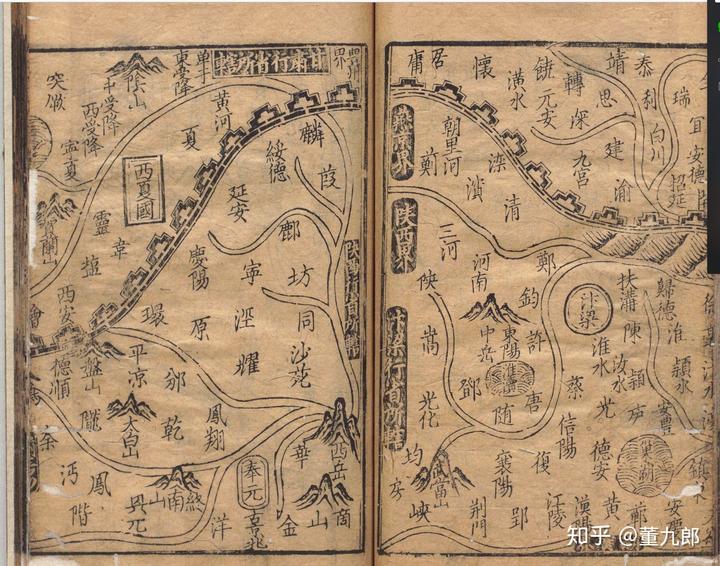 靖
泰
瑞
利
思
宜
安德
招延
白川
饒
元安
轉
深
九宮
建
渝
懷
潢水
朝里河
薊
滦
清
陝西界
三河
河南
陝
鄭
鈞
許
汴梁
扶溝
陳
歸德
淮
潁水
淮水
汝水
潁
安豐
巢湖
中岳
嵩
鄧
唐
隨
蔡
光
信陽
德安
復
光化
均
武當山
襄陽
房
峽
荊門
郢
江陵
漢陽
黃
鄿
安慶
鎮
汴梁行省所轄
甘肅行省所轄
單于
東受降
陰山
中受降
西受降
突厥
寧夏
黃河
夏
西夏國
賀蘭山
靈
韋
鹽
西安
麟
葭
綏德
延安
鄜
坊
慶陽
寧
同
沙苑
原
環
涇
耀
平涼
邠
德順
隴
太白山
乾
鳳翔
西岳
華
奉元
京兆
終南山
商
金
山
洋
興元
鳳
階
沔
知乎 @董九郎